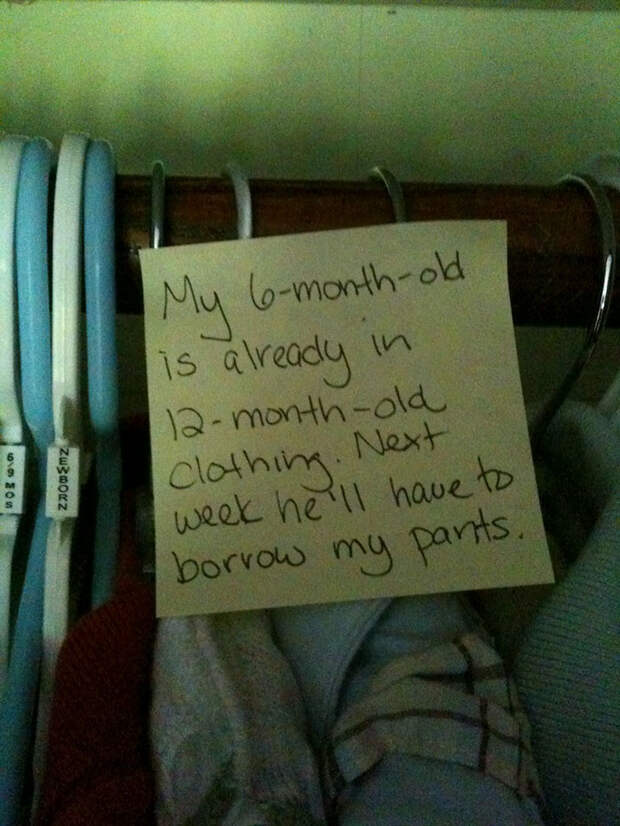 My 6-month-old
is already in
12-month-old
clothing. Next
week he'll have to
borrow my pants.
6/9 MOS
NEWBORN